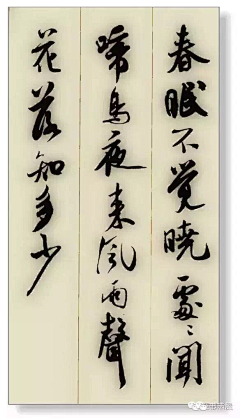 春眠不觉晓處々闻
啼鸟夜来风雨聲
花落知多少